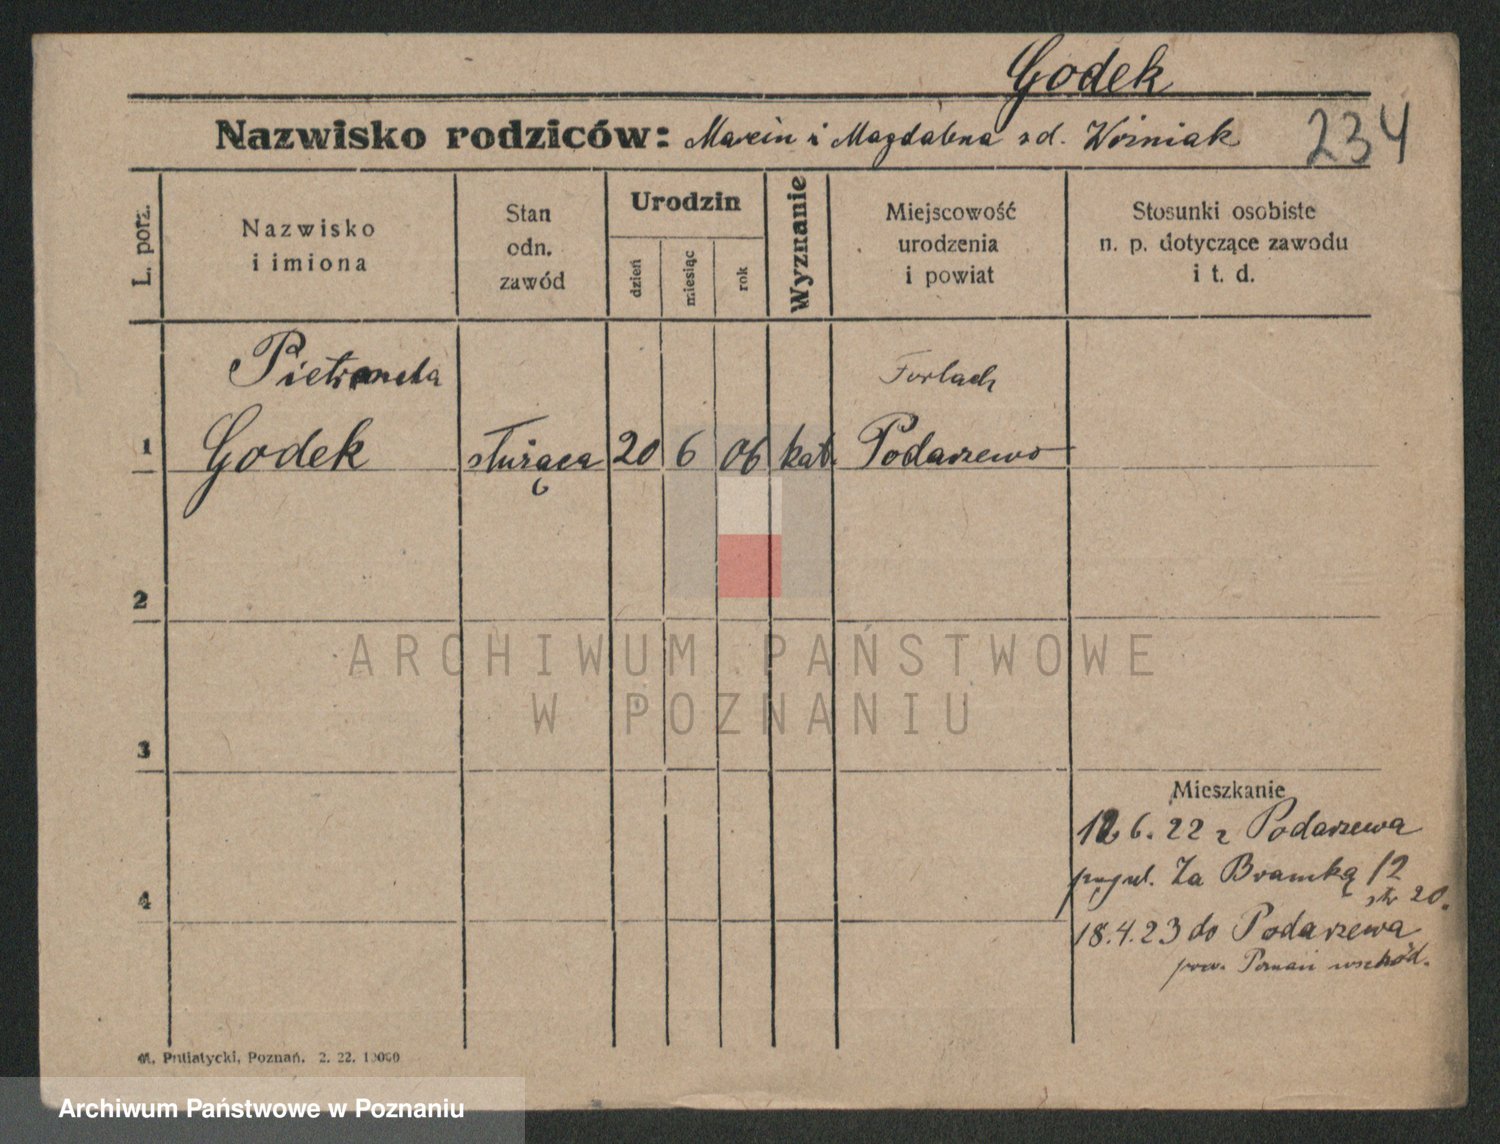 Godek
Nazwisko rodziców: Marcin i Magdalena zd. Woźniak
234
L. porz.
Nazwisko
i imiona
Stan
odn.
zawód
Urodzin
dzień
miesiąc
rok
Wyznanie
Miejscowość
urodzenia
i powiat
Stosunki osobiste
n. p. dotyczące zawodu
i t. d.
Pietronela
Furlach
1 Godek służąca 20 6 06 kat. Podarzewo
2
ARCHIWUM PAŃSTWOWE
W POZNANIU
3
Mieszkanie
12.6.22 z Podarzewa
Za Bramką 12
str 20.
4
18.4.23 do Podarzewa
pow. Poznań wschód.
M. Putiatycki, Poznań. 2. 22. 10000
Archiwum Państwowe w Poznaniu